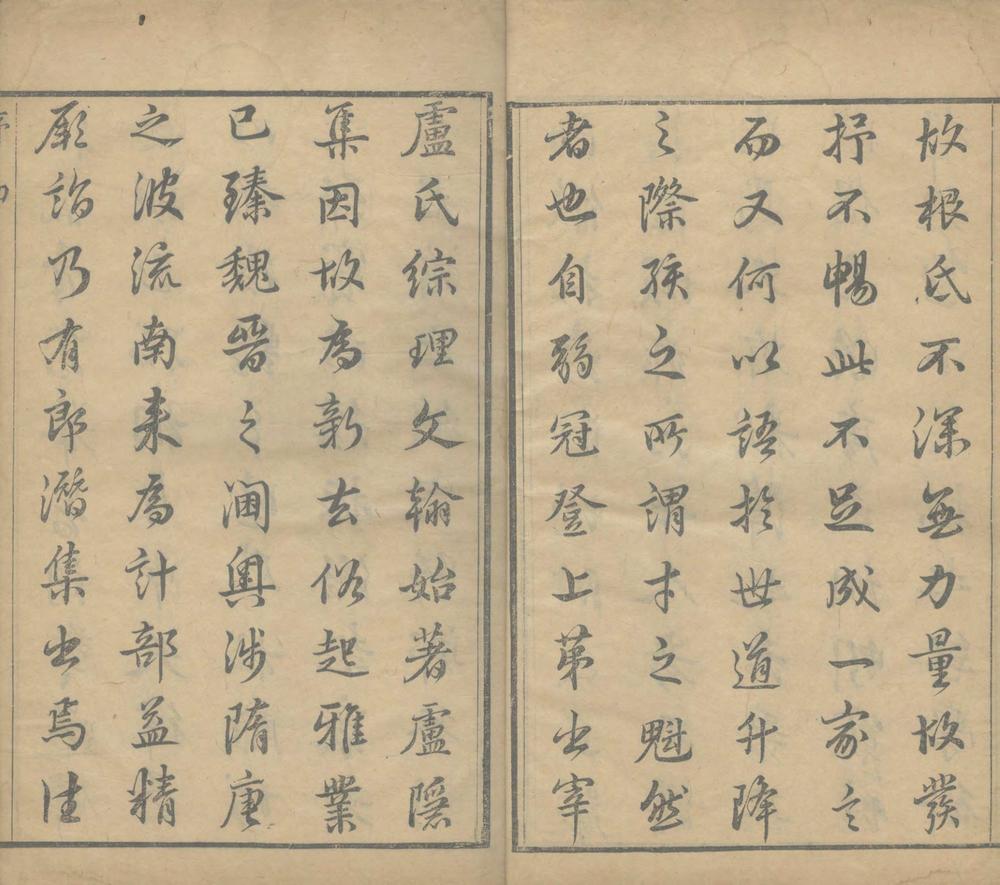 故根氐不深無力量故發
抒不暢此不足成一家言
而又何以語於世道升降
之際疾之所謂才之魁然
者也自弱冠登上第出宰
盧氏綜理文翰始著盧隱
集因故為新去俗起雅業
已臻魏晉之閫輿涉隋唐
之波流南來為計部益精
厥詣乃有郎潛集出焉往
序